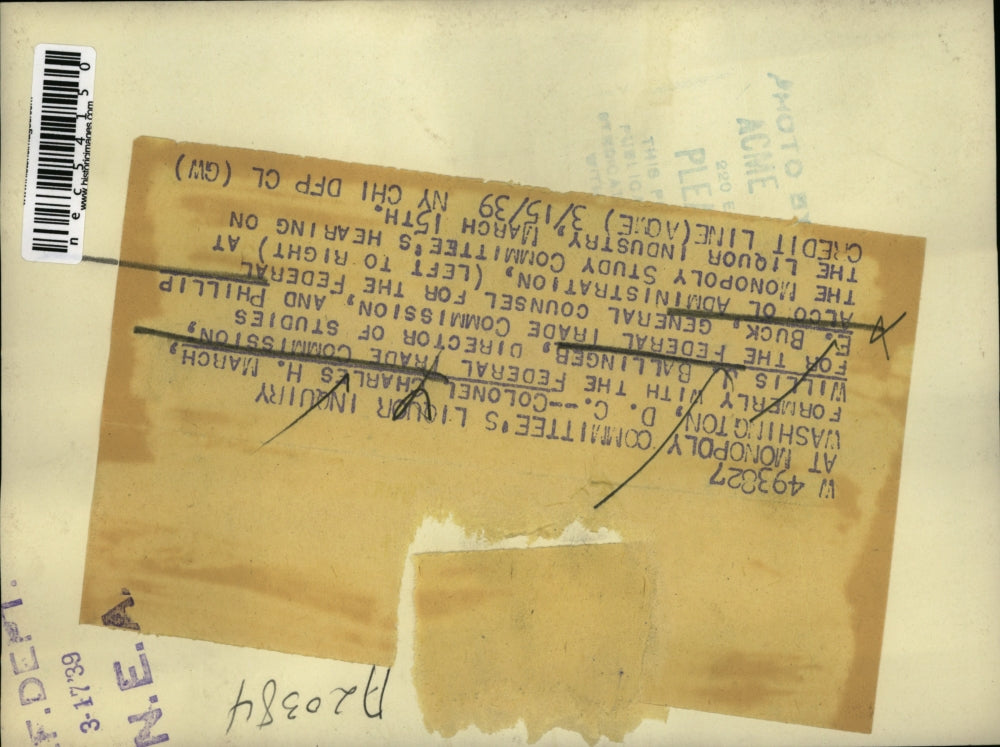 W 493827
AT MONOPOLY COMMITTEE'S LIQUOR INQUIRY
WASHINGTON, D. C.--COLONEL CHARLES H. MARCH
FORMERLY WITH THE FEDERAL TRADE COMMISSION,
WILLIS J. BALLINGER, DIRECTOR OF STUDIES
FOR THE FEDERAL TRADE COMMISSION, AND PHILLIP
E. BUCK, GENERAL COUNSEL FOR THE FEDERAL
ALCO OL ADMINISTRATION, (LEFT TO RIGHT) AT
THE MONOPOLY STUDY COMMITTEE'S HEARING ON
THE LIQUOR INDUSTRY, MARCH 15TH.
CREDIT LINE (ACME) 3/15/39 NY CHI DFP CL (GW)
PHOTO BY
ACME
220 E
THIS P
A20384
T. DEPT.
3-17'39
N.E.A.
nec54150
www.historicimages.com